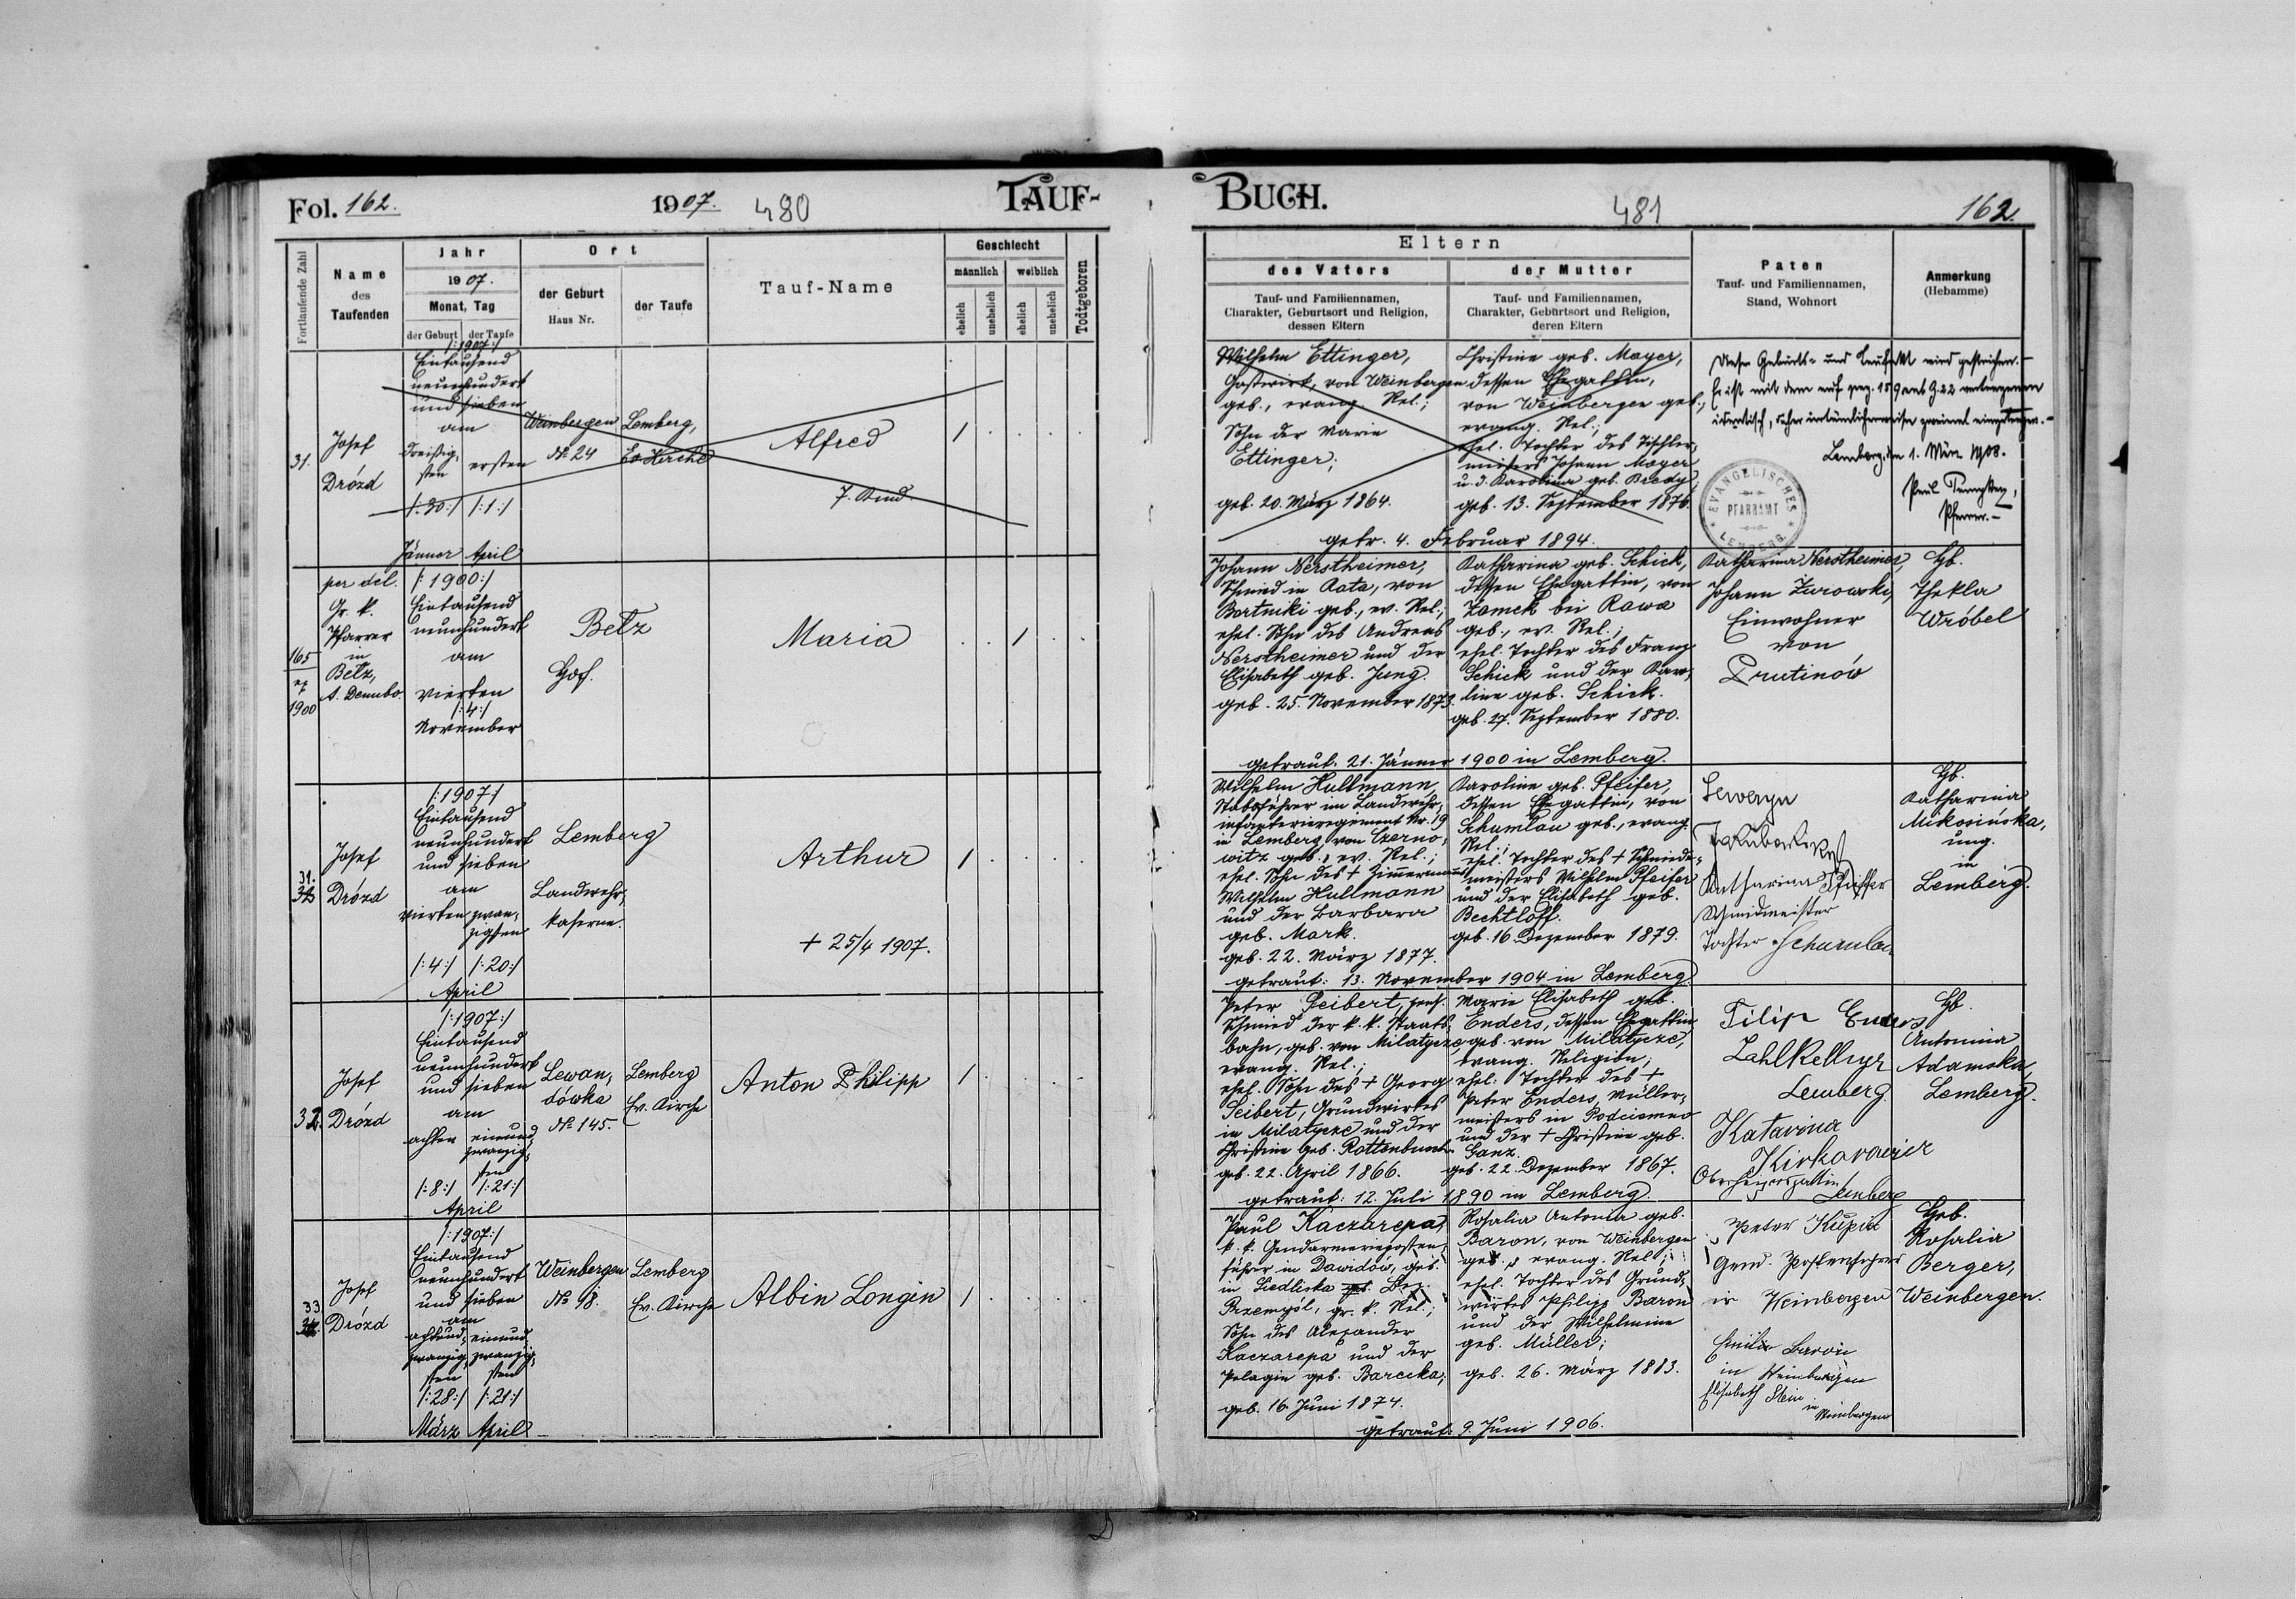 Fol. 162.
1907.
480
TAUF-
BUCH.
481
162.
Fortlaufende Zahl
Name
des
Taufenden
Jahr
1907.
Monat, Tag
der Geburt
der Taufe
Ort
der Geburt
Haus Nr.
der Taufe
Tauf-Name
Geschlecht
männlich
weiblich
ehelich
unehelich
ehelich
unehelich
Todtgeboren
Eltern
des Vaters
Tauf- und Familiennamen,
Charakter, Geburtsort und Religion,
dessen Eltern
der Mutter
Tauf- und Familiennamen,
Charakter, Geburtsort und Religion,
deren Eltern
Paten
Tauf- und Familiennamen,
Stand, Wohnort
Anmerkung
(Hebamme)
31.
Josef
Drózd
/:1907:/
Eintausend
neunhundert
und sieben
am
dreißig-
sten
/:30:/
Jänner
ersten
/:1:/
April
Weinbergen
No 24
Lemberg,
Ev. Kirche
Alfred
7. Kind
1
Wilhelm Ettinger,
Gastwirt, von Weinbergen
geb., evang. Rel.;
Sohn der Marie
Ettinger;
geb. 20. März 1864.
Christine geb. Mayer,
dessen Ehegattin,
von Weinbergen geb.,
evang. Rel.;
ehel. Tochter des Tischler-
meisters Johann Mayer
u. d. Karolina geb. Bredy;
geb. 13. September 1876.
getr. 4. Februar 1894.
Diese Geburts- und Taufakt wird gestrichen.-
Er ist mit dem auf pag. 159 sub Z. 22
identisch, daher irrtümlicherweise zweimal eingetragen.-
Lemberg, den 1. März 1908.
Paul
Pfarrer.-
EVANGELISCHES
PFARRAMT
LEMBERG
165
ex
1900
per del.
Gr. k.
Pfarrer
in
Betz,
A. Dembo.
/:1900:/
Eintausend
neunhundert
am
vierten
/:4:/
November
Betz
Hof.
Maria
1
Johann Nerstheimer,
Schmied in Rata, von
Bortniki geb., ev. Rel.;
ehel. Sohn des Andreas
Nerstheimer und der
Elisabeth geb. Jung.
geb. 25. November 1873.
Katharina geb. Schick,
dessen Ehegattin, von
Zamek bei Rawa
geb., ev. Rel.;
ehel. Tochter des Franz
Schick und der Karo-
line geb. Schick.
geb. 27. September 1880.
getraut. 21. Jänner 1900 in Lemberg.
Katharina Nerstheimer,
Johann Zurowski,
Einwohner
von
Prutinów
Hb.
Thekla
Wróbel
31.
32
Josef
Drózd
/:1907:/
Eintausend
neunhundert
und sieben
am
vierten
/:4:/
zwan-
zigsten
/:20:/
April
Lemberg
Landwehr-
kaserne.
Arthur
+ 25/4 1907.
1
Wilhelm Hullmann,
Stabsführer im Landwehr-
infanterieregiment Nr. 19
in Lemberg, von Czerno-
witz geb., ev. Rel.;
ehel. Sohn des + Zimmermann
Wilhelm Hullmann
und der Barbara
geb. Mark.
geb. 22. März 1877.
Karoline geb. Pfeifer,
dessen Ehegattin, von
Schumlau geb., evang.
Rel.;
ehel. Tochter des + Schmiede-
meisters Wilhelm Pfeifer
und der Elisabeth geb.
Bechtloff.
geb. 16. Dezember 1879.
getraut: 13. November 1904 in Lemberg.
Seweryn
Katharina Pfeiffer
Schmidmeister
Tochter Schumlau
Hb.
Katharina
Mikosińska,
ung.
in
Lemberg.
32.
Josef
Drózd
/:1907:/
Eintausend
neunhundert
und sieben
am
achten
/:8:/
einund-
zwanzig-
sten
/:21:/
April
Lewan-
dówka
No 145.
Lemberg
Ev. Kirche
Anton Philipp
1
Peter Seibert, pens.
Schmied der k. k. Staats-
bahn, geb. von Milatycze,
evang. Rel.;
ehel. Sohn des + Georg
Seibert, Grundwirtes
in Milatycze und der
Christine geb. Rottenbusch
geb. 22. April 1866.
Marie Elisabeth geb.
Enders, dessen Ehegattin
geb. von Milatycze,
evang. Religion;
ehel. Tochter des +
Peter Enders, Müller-
meisters in Podciemno
und der + Christine geb.
Ganz.
geb. 22. Dezember 1867.
getraut: 12. Juli 1890 in Lemberg.
Filip Enders
Zahlkellner
Lemberg.
Katarina
Lemberg
Hb.
Antonina
Adamska,
Lemberg.
33
Josef
Drózd
/:1907:/
Eintausend
neunhundert
und sieben
am
achtund-
zwanzig-
sten
/:28:/
März
einund-
zwanzig-
sten
/:21:/
April
Weinbergen
No 18.
Lemberg
Ev. Kirche
Albin Longin
1
Paul Kaczarepa,
k. k. Gendarmerieposten-
führer in Dawidów, geb.
in Siedliska Bez.
Przemyśl, gr. k. Rel.;
Sohn des Alexander
Kaczarepa und der
Pelagie geb. Barecka;
geb. 16. Juni 1874.
Rosalia Antonia geb.
Baron, von Weinbergen
geb., evang. Rel.;
ehel. Tochter des Grund-
wirtes Philipp Baron
und der Wilhelmine
geb. Müller;
geb. 26. März 1883.
getraut. 9. Juni 1906.
Peter Kupia
Gend. Postenführer
in Weinbergen
Emilie Baron
in Weinbergen
Elisabeth Stein
in
Weinbergen
Geb.
Rosalia
Berger,
Weinbergen.